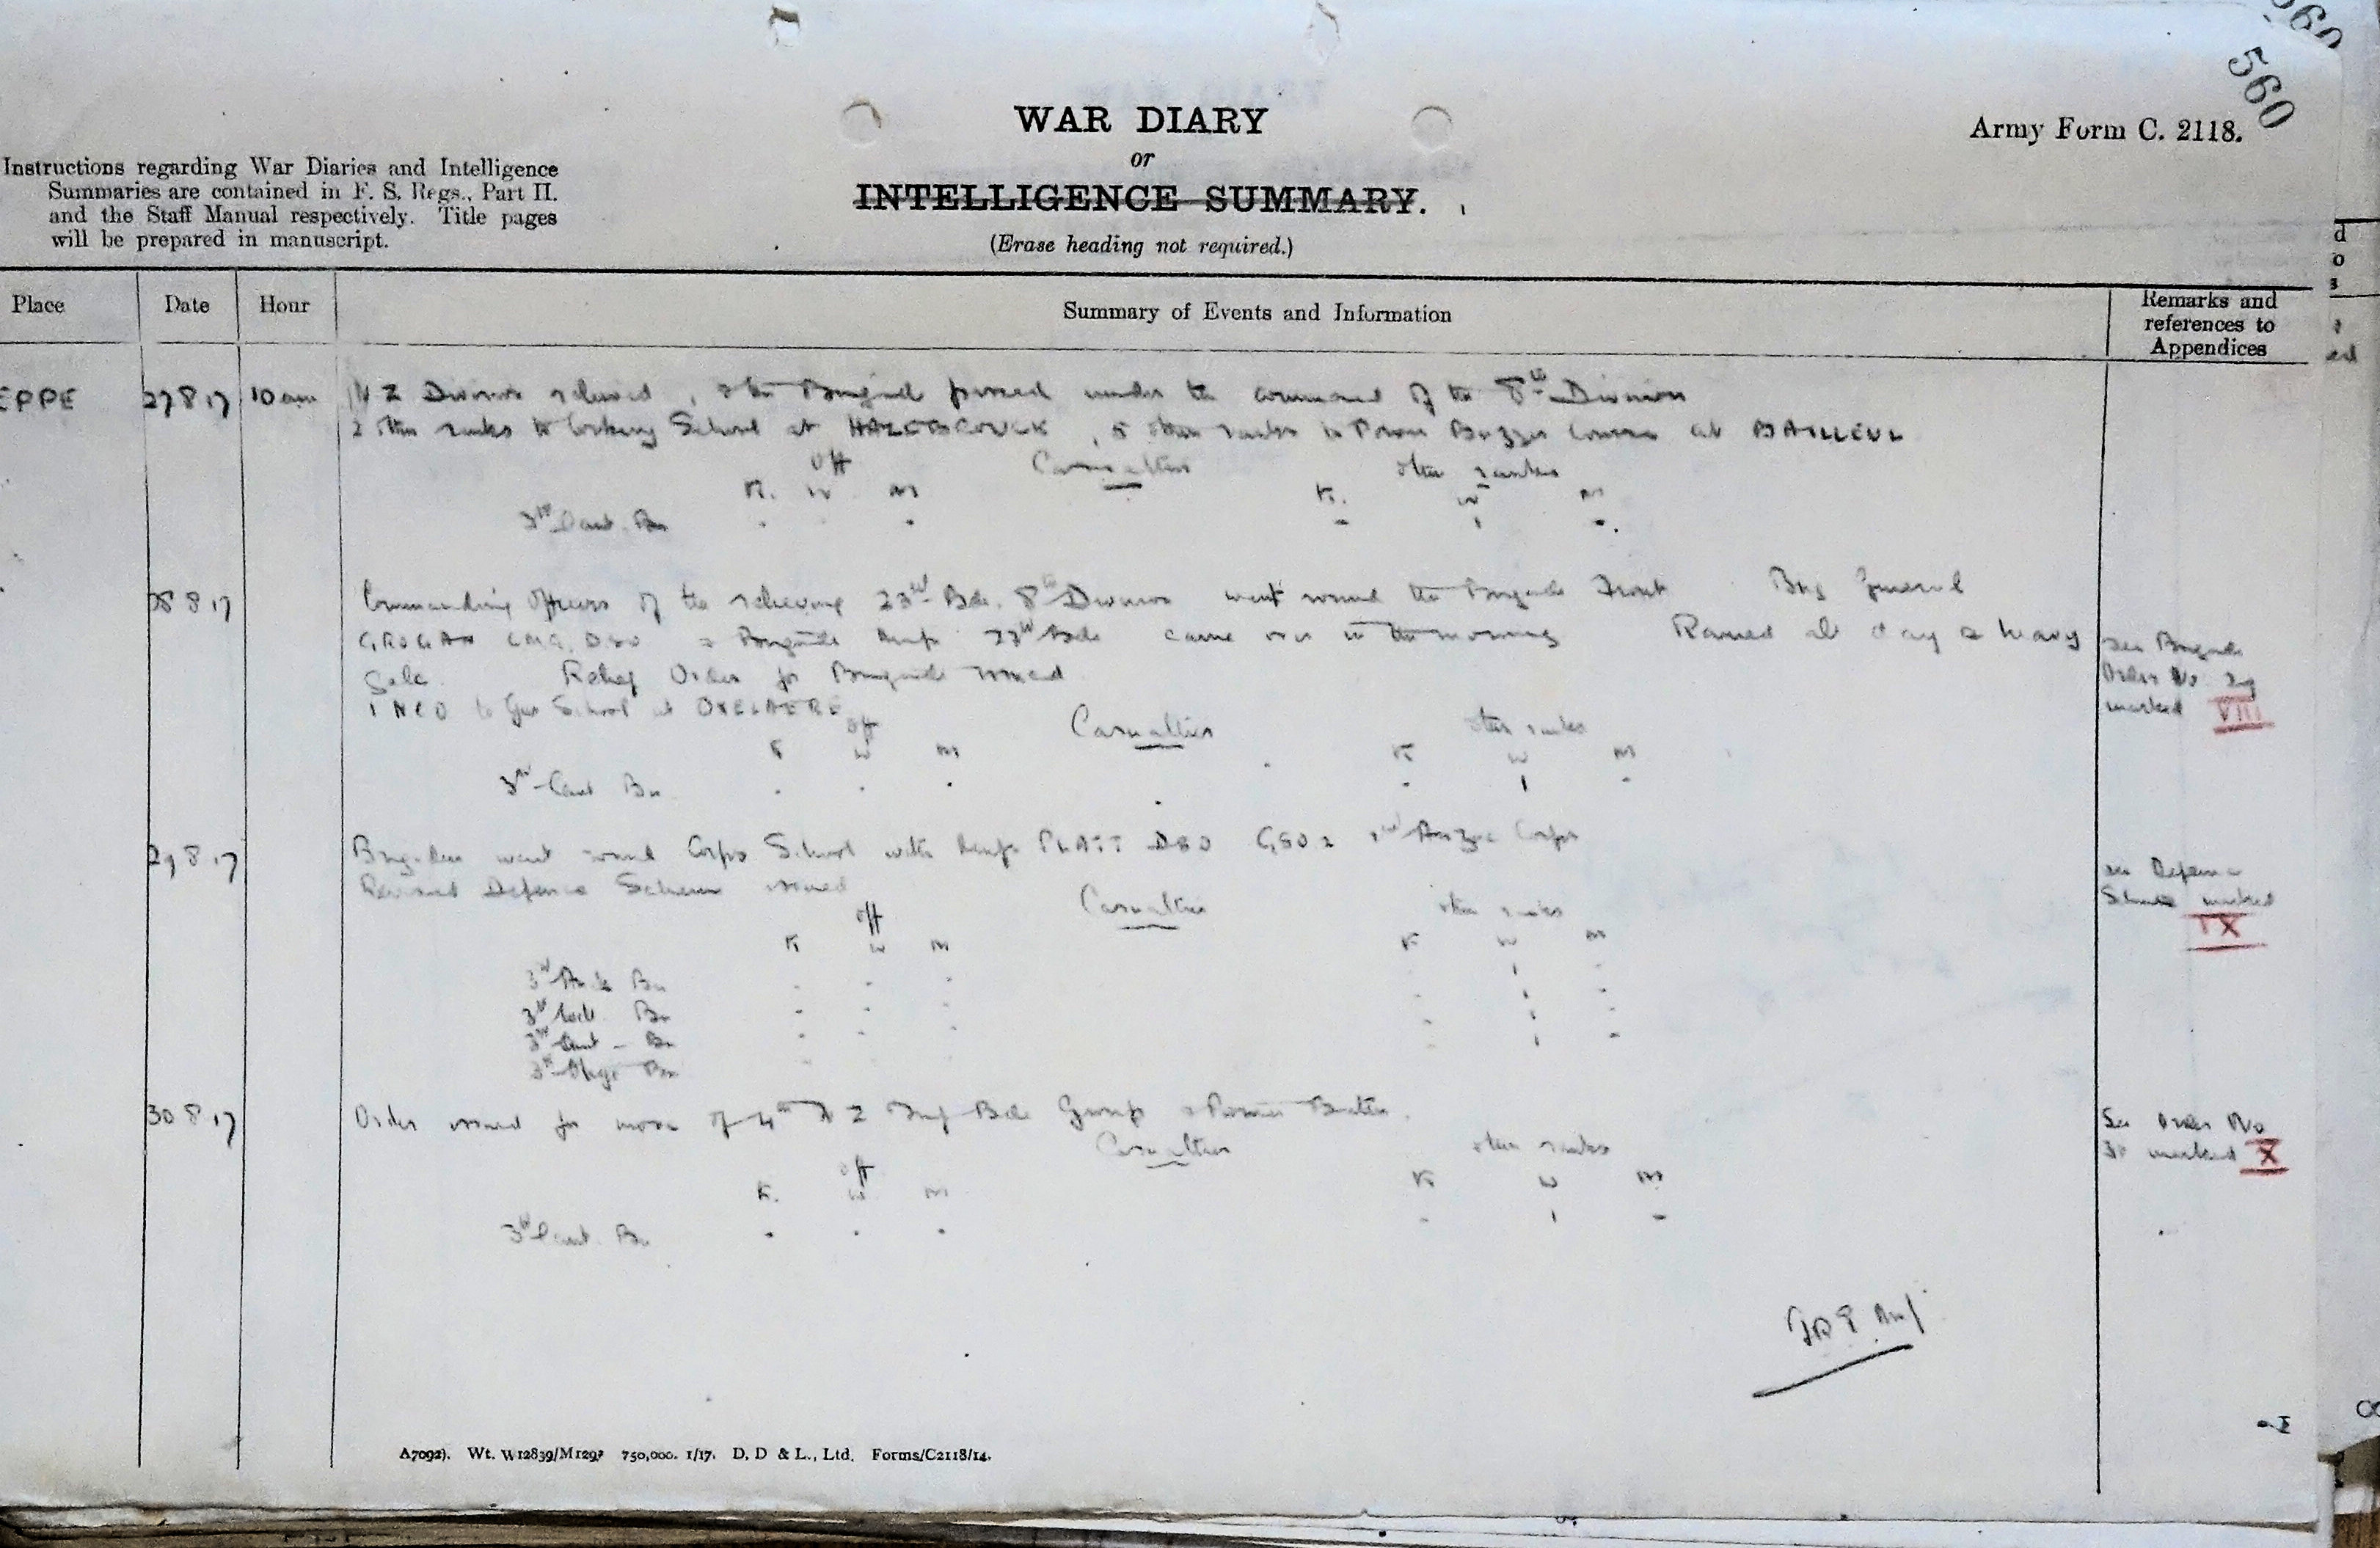 560
560
WAR DIARY
or
INTELLIGENCE SUMMARY.
(Erase heading not required.)
Army Form C. 2118.
Instructions regarding War Diaries and Intelligence
Summaries are contained in F. S. Regs., Part II.
and the Staff Manual respectively. Title pages
will be prepared in manuscript.
Place Date Hour Summary of Events and Information Remarks and
references to
Appendices
EPPE 27 8 17 10 am N Z Division relieved, & the Brigade passed under the command of the 8th Division
2 other ranks to Cookery School at HAZEBROUCK, 5 other ranks to Power Buzzer Course at BAILLEUL
Off Casualties other ranks
K. W M K. W M
3rd Cant. Bn - - - 1 -
28 8 17 Commanding Officers of the relieving 23rd Bde. 8th Division went round the Brigade Front Brig General
GROGAN CMG. DSO & Brigade Major 23rd Bde came over in the morning Rained all day & heavy
gale. Relief Order for Brigade issued
see Brigade
Order No 29
marked VIII
1 NCO to Gas School at OXELAERE
Off Casualties other ranks
K W M K W M
3rd Cant Bn - - - - 1 -
29 8 17 Brigadier went round Corps School with Major PLATT DSO GSO 2 2nd Anzac Corps
Revised Defence Scheme issued
see Defence
Scheme marked
IX
Off Casualties other ranks
K W M K W M
3rd Auck Bn - - - - 1 -
3rd Well. Bn - - - - 1 -
3rd Cant - Bn - - - - 1 -
3rd Otago Bn - 1 -
30 8 17 Order issued for move of 4th N Z Inf Bde Group
See Order No
30 marked X
Casualties other ranks
Off
K. W M K W M
3rd Cant. Bn - - - - 1 -
A7092). Wt. W12839/M1293 750,000. 1/17. D. D & L., Ltd. Forms/C2118/14.